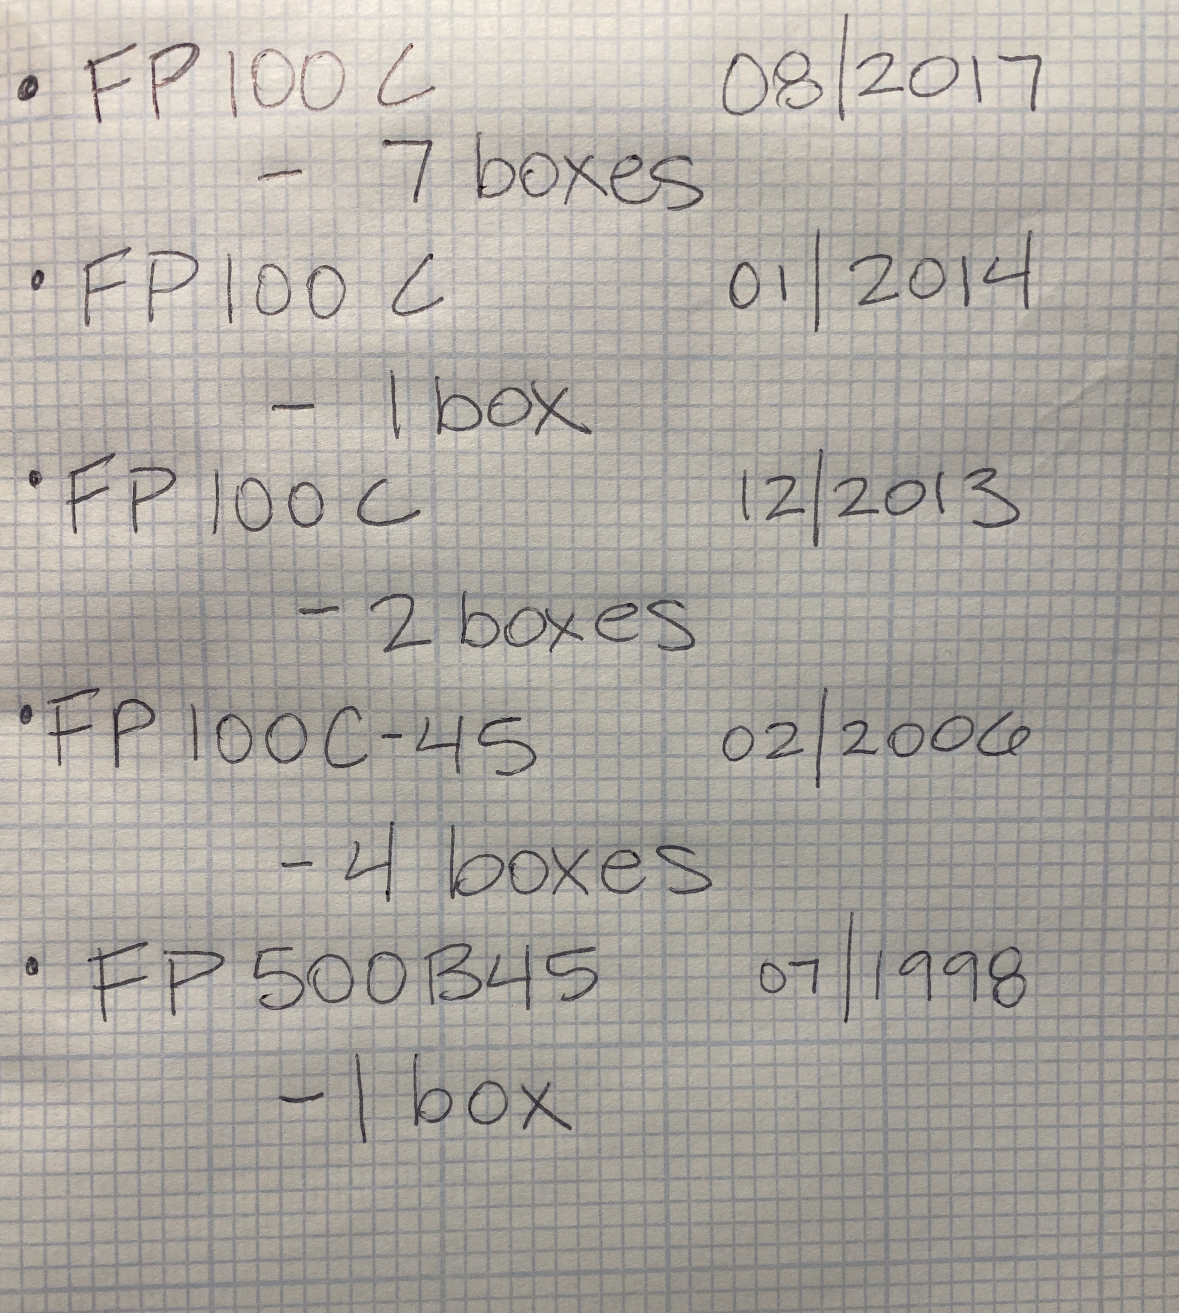 • FP100C 08/2017
- 7 boxes
• FP100C 01/2014
- 1 box
• FP100C 12/2013
- 2 boxes
• FP100C-45 02/2006
- 4 boxes
• FP500B45 07/1998
- 1 box